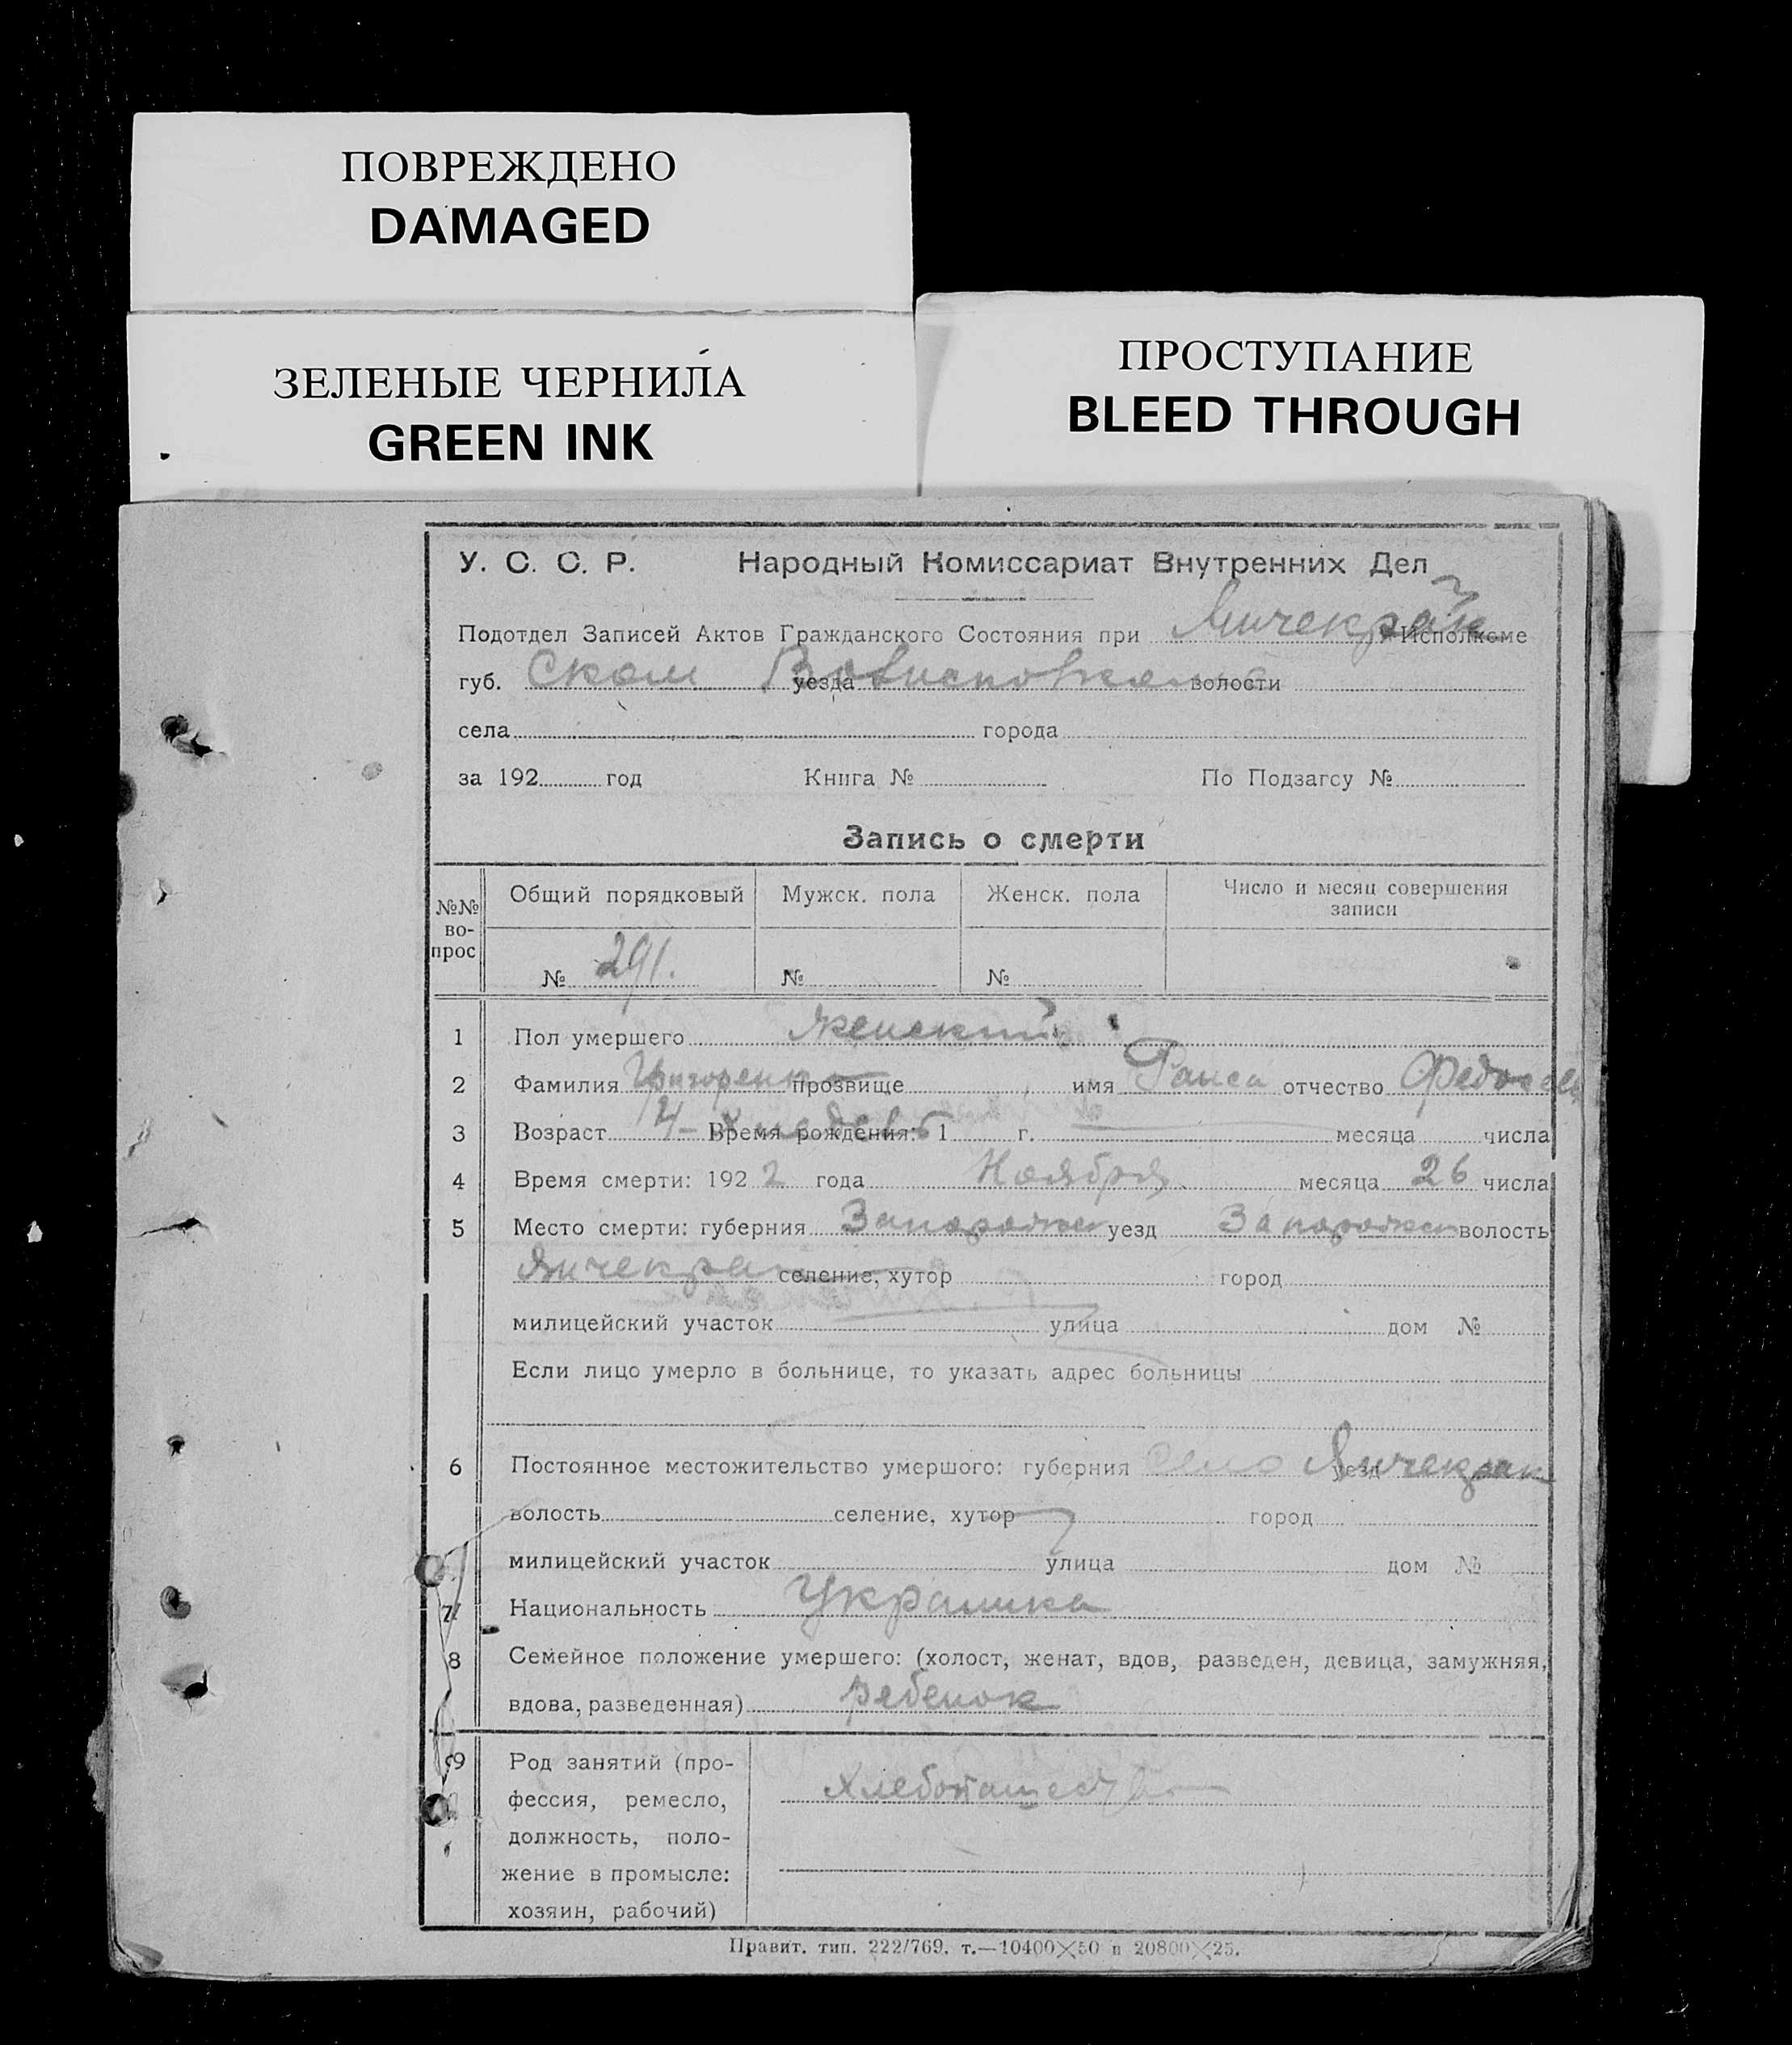 ПОВРЕЖДЕНО
DAMAGED
ЗЕЛЕНЫЕ ЧЕРНИЛА
GREEN INK
ПРОСТУПАНИЕ
BLEED THROUGH
У. С. С. Р. Народный Комиссариат Внутренних Дел
Подотдел Записей Актов Гражданского Состояния при Исполкоме
губ. Ском уезда волости
села города
за 192 год Книга № По Подзагсу №
Запись о смерти
№№ вопрос Общий порядковый Мужск. пола Женск. пола Число и месяц совершения записи
№ 291. № №
1 Пол умершего женский
2 Фамилия Григоренко прозвище имя Раиса отчество
3 Возраст 4 Время рождения: 1 г. месяца числа
4 Время смерти: 192 2 года Ноября месяца 26 числа
5 Место смерти: губерния Запорожск уезд Запорожск волость
Янчекрак селение, хутор город
милицейский участок улица дом №
Если лицо умерло в больнице, то указать адрес больницы
6 Постоянное местожительство умершого: губерния село уезд Янчекрак
волость селение, хутор город
милицейский участок улица дом №
7 Национальность Украинка
8 Семейное положение умершего: (холост, женат, вдов, разведен, девица, замужняя,
вдова, разведенная) ребенок
9 Род занятий (про-
фессия, ремесло, Хлебопашество
должность, поло-
жение в промысле:
хозяин, рабочий)
Правит. тип. 222/769. т.—10400×50 и 20800×25.